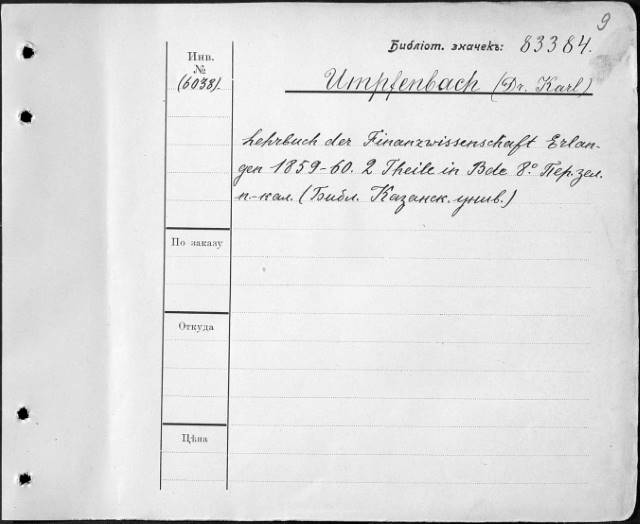 9
Библіот. значекъ: 83384.
Инв.
№
(6038).
Umpfenbach (Dr. Karl)
Lehrbuch der Finanzwissenschaft Erlan-
gen 1859-60. 2 Theile in Bde 8º Пер. зел.
п.-кал. (Библ. Казанск. унив.)
По заказу
Откуда
Цѣна